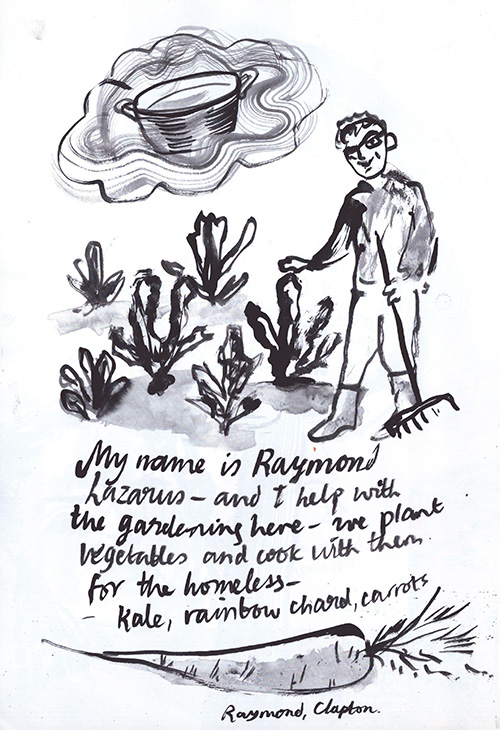 My name is Raymond
Lazarus - and I help with
the gardening here - we plant
vegetables and cook with them
for the homeless -
- Kale, rainbow chard, carrots
Raymond, Clapton.